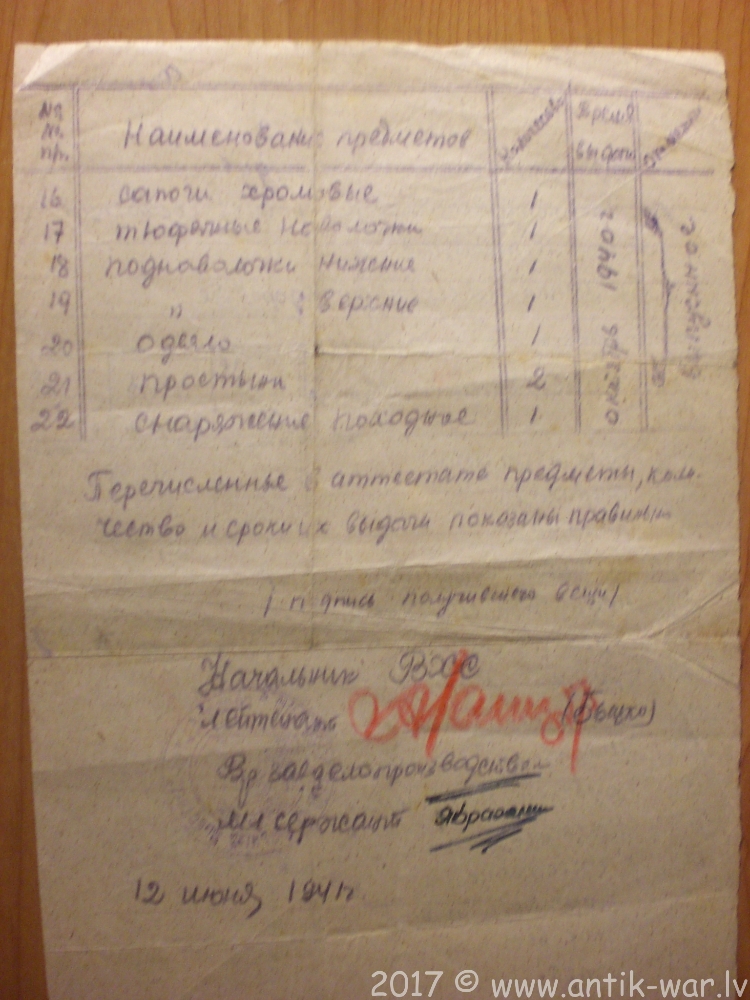 №№ пр. Наименование предметов Количество Время выдачи
16 сапоги хромовые 1
17 тюфячные наволочки 1
18 поднаволочки нижние 1
19 " верхние 1
20 одеяло 1
21 простыни 2
22 снаряжение походное 1
октябрь 1940 г.
Перечисленные в аттестате предметы, коли-
чество и сроки их выдачи показаны правильно
/подпись получившего вещи/
Начальник ВХС
Лейтенант
Вр зав делопроизводством
Мл сержант
12 июня 1941 г.
2017 © www.antik-war.lv